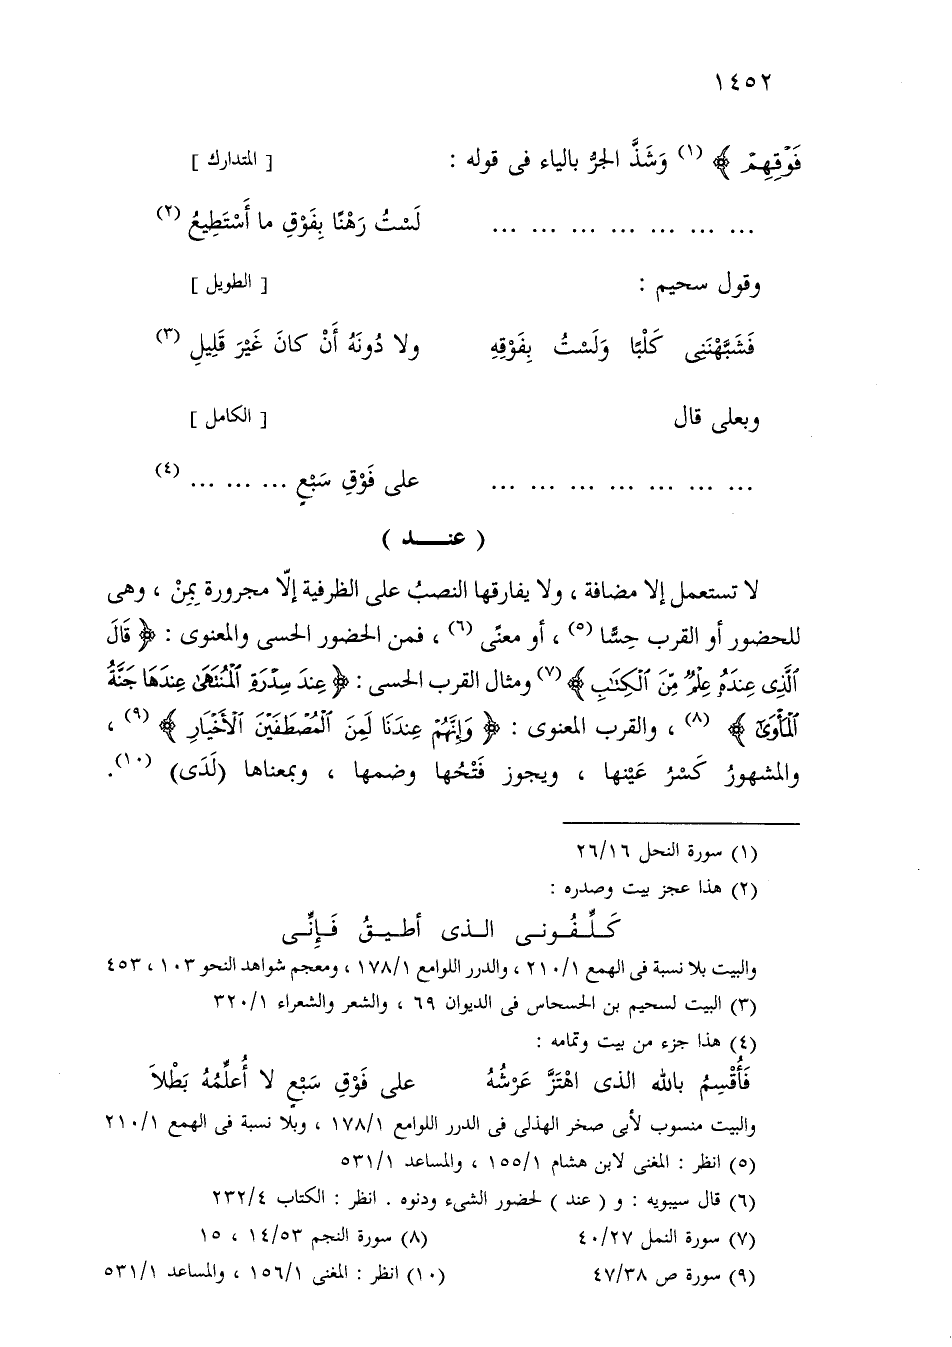 ١٤٥٢
فَوْقِهِمْ ﴾ (١) وَشَذَّ الجرُّ بالياء فى قوله : [ المتدارك ]
... ... ... ... ... ... ... لَسْتُ رَهْنًا بِفَوْقِ ما أَسْتَطِيعُ (٢)
وقول سحيم : [ الطويل ]
فَشَبَّهْنَنِى كَلْبًا وَلَسْتُ بِفَوْقِهِ ولا دُونَهُ أَنْ كانَ غَيْرَ قَلِيلِ (٣)
وبعلى قال [ الكامل ]
... ... ... ... ... ... ... على فَوْقِ سَبْعٍ ... ... ... (٤)
( عنــد )
لا تستعمل إلا مضافة ، ولا يفارقها النصبُ على الظرفية إلّا مجرورة بِمِنْ ، وهى
للحضور أو القرب حِسًّا (٥) ، أو معنًى (٦) ، فمن الحضور الحسى والمعنوى : ﴿ قَالَ
ٱلَّذِى عِندَهُ عِلْمٌ مِّنَ ٱلْكِتَٰبِ ﴾ (٧) ومثال القرب الحسى : ﴿ عِندَ سِدْرَةِ ٱلْمُنتَهَىٰ عِندَهَا جَنَّةُ
ٱلْمَأْوَىٰٓ ﴾ (٨) ، والقرب المعنوى : ﴿ وَإِنَّهُمْ عِندَنَا لَمِنَ ٱلْمُصْطَفَيْنَ ٱلْأَخْيَارِ ﴾ (٩) ،
والمشهورُ كَسْرُ عَيْنها ، ويجوز فَتْحُها وضمها ، وبمعناها (لَدَى) (١٠).
(١) سورة النحل ٢٦/١٦
(٢) هذا عجز بيت وصدره :
كَـلَّـفُـونـى الـذى أطـيـقُ فَـإِنِّـى
والبيت بلا نسبة فى الهمع ٢١٠/١ ، والدرر اللوامع ١٧٨/١ ، ومعجم شواهد النحو ١٠٣ ، ٤٥٣
(٣) البيت لسحيم بن الحسحاس فى الديوان ٦٩ ، والشعر والشعراء ٣٢٠/١
(٤) هذا جزء من بيت وتمامه :
فَأُقْسِمُ بالله الذى اهْتَزَّ عَرْشُهُ على فَوْقِ سَبْعٍ لا أُعلِّمُهُ بَطْلاَ
والبيت منسوب لأبى صخر الهذلى فى الدرر اللوامع ١٧٨/١ ، وبلا نسبة فى الهمع ٢١٠/١
(٥) انظر : المغنى لابن هشام ١٥٥/١ ، والمساعد ٥٣١/١
(٦) قال سيبويه : و ( عند ) لحضور الشىء ودنوه . انظر : الكتاب ٢٣٢/٤
(٧) سورة النمل ٤٠/٢٧ (٨) سورة النجم ١٤/٥٣ ، ١٥
(٩) سورة ص ٤٧/٣٨ (١٠) انظر : المغنى ١٥٦/١ ، والمساعد ٥٣١/١